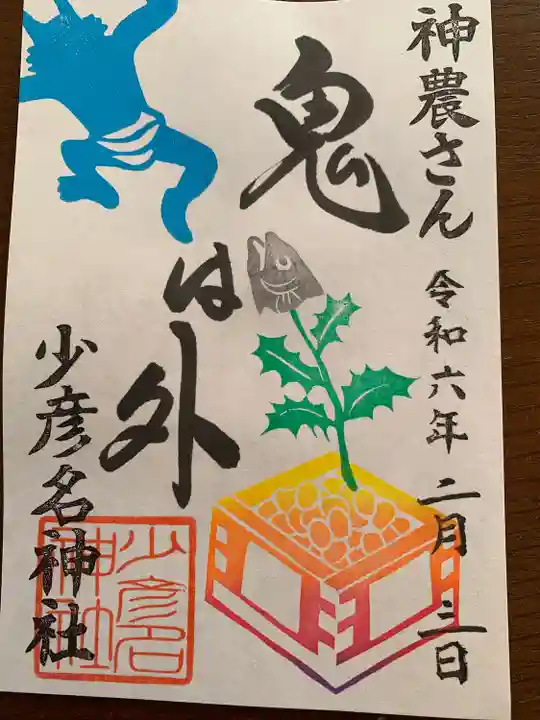 神農さん
令和六年 二月 三日
鬼は外
少彦名神社
少彦名
神社